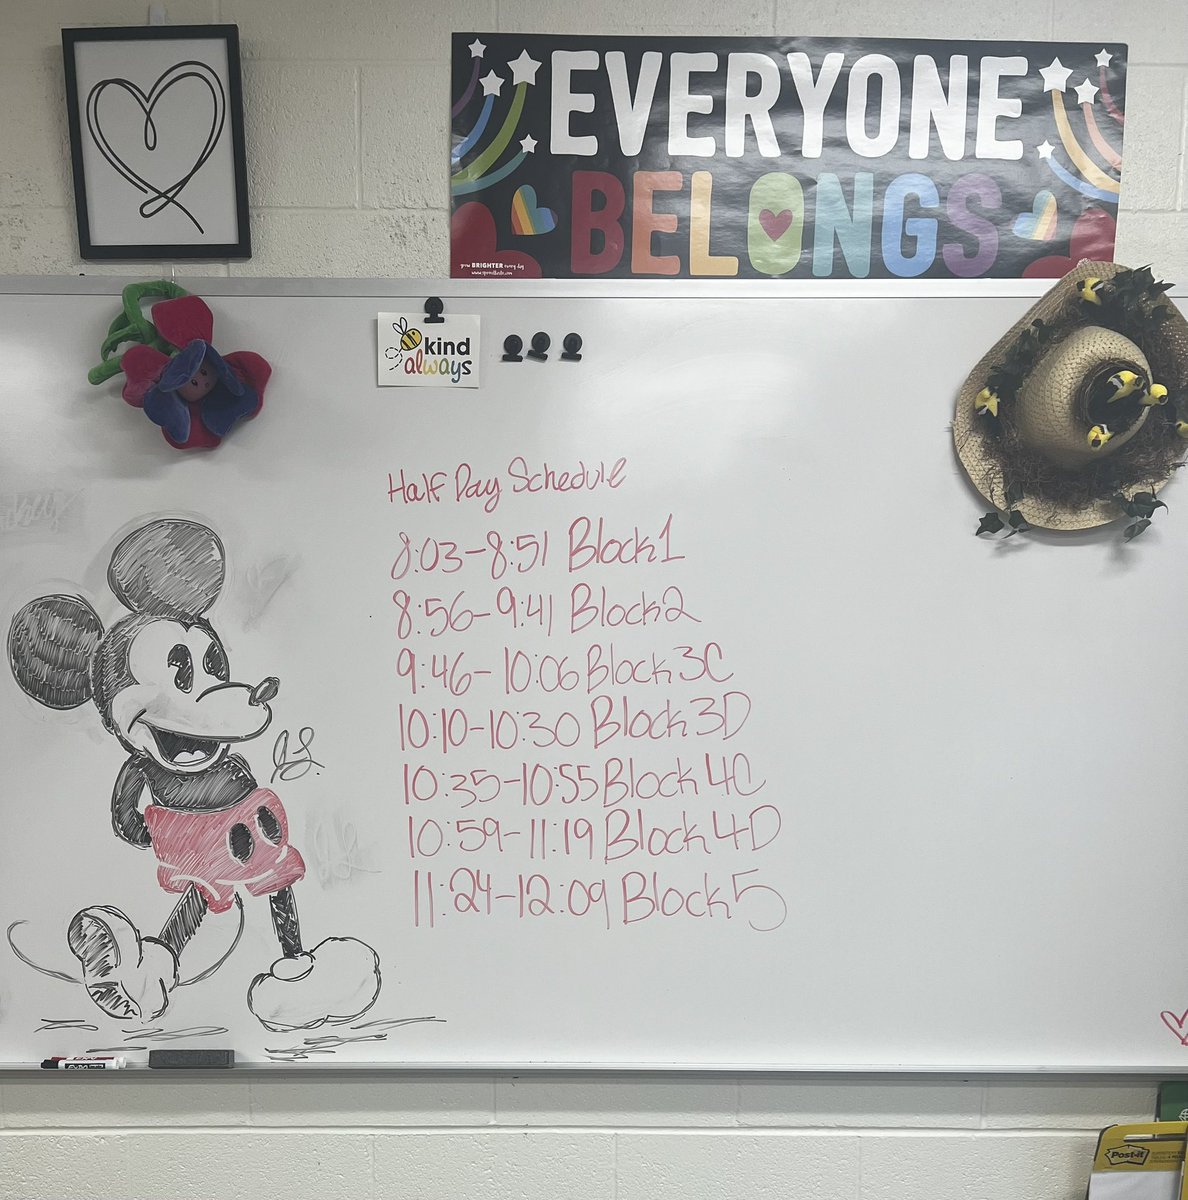 EVERYONE
BELONGS
grow BRIGHTER every day
kind
always
Half Day Schedule
8:03-8:51 Block 1
8:56-9:41 Block 2
9:46-10:06 Block 3C
10:10-10:30 Block 3D
10:35-10:55 Block 4C
10:59-11:19 Block 4D
11:24-12:09 Block 5
EXPO
Post-it